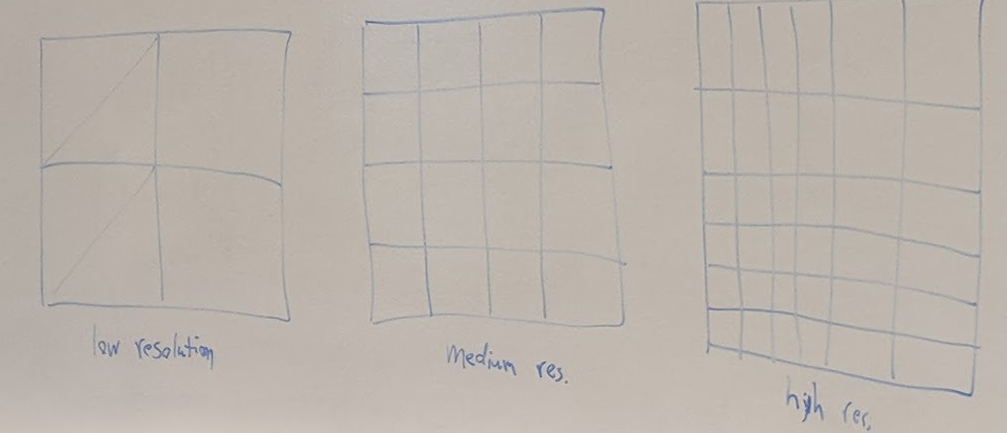 low resolution
medium res.
high res.